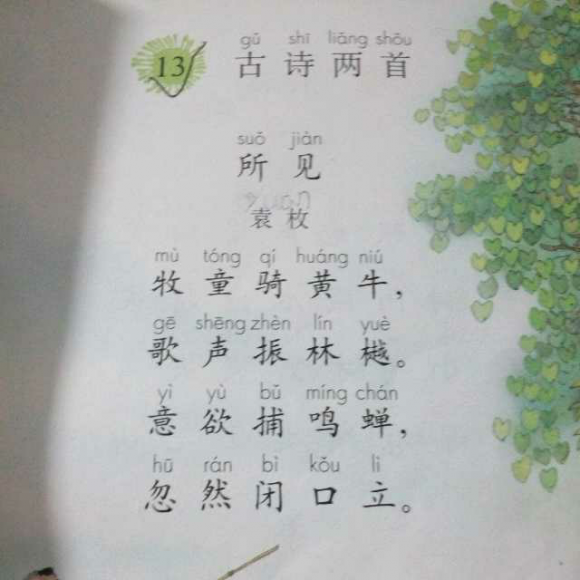 gǔ shī liǎng shǒu
13 古诗两首
suǒ jiàn
所见
yuan
袁枚
mù tóng qí huáng niú
牧童骑黄牛，
gē shēng zhèn lín yuè
歌声振林樾。
yì yù bǔ míng chán
意欲捕鸣蝉，
hū rán bì kǒu lì
忽然闭口立。